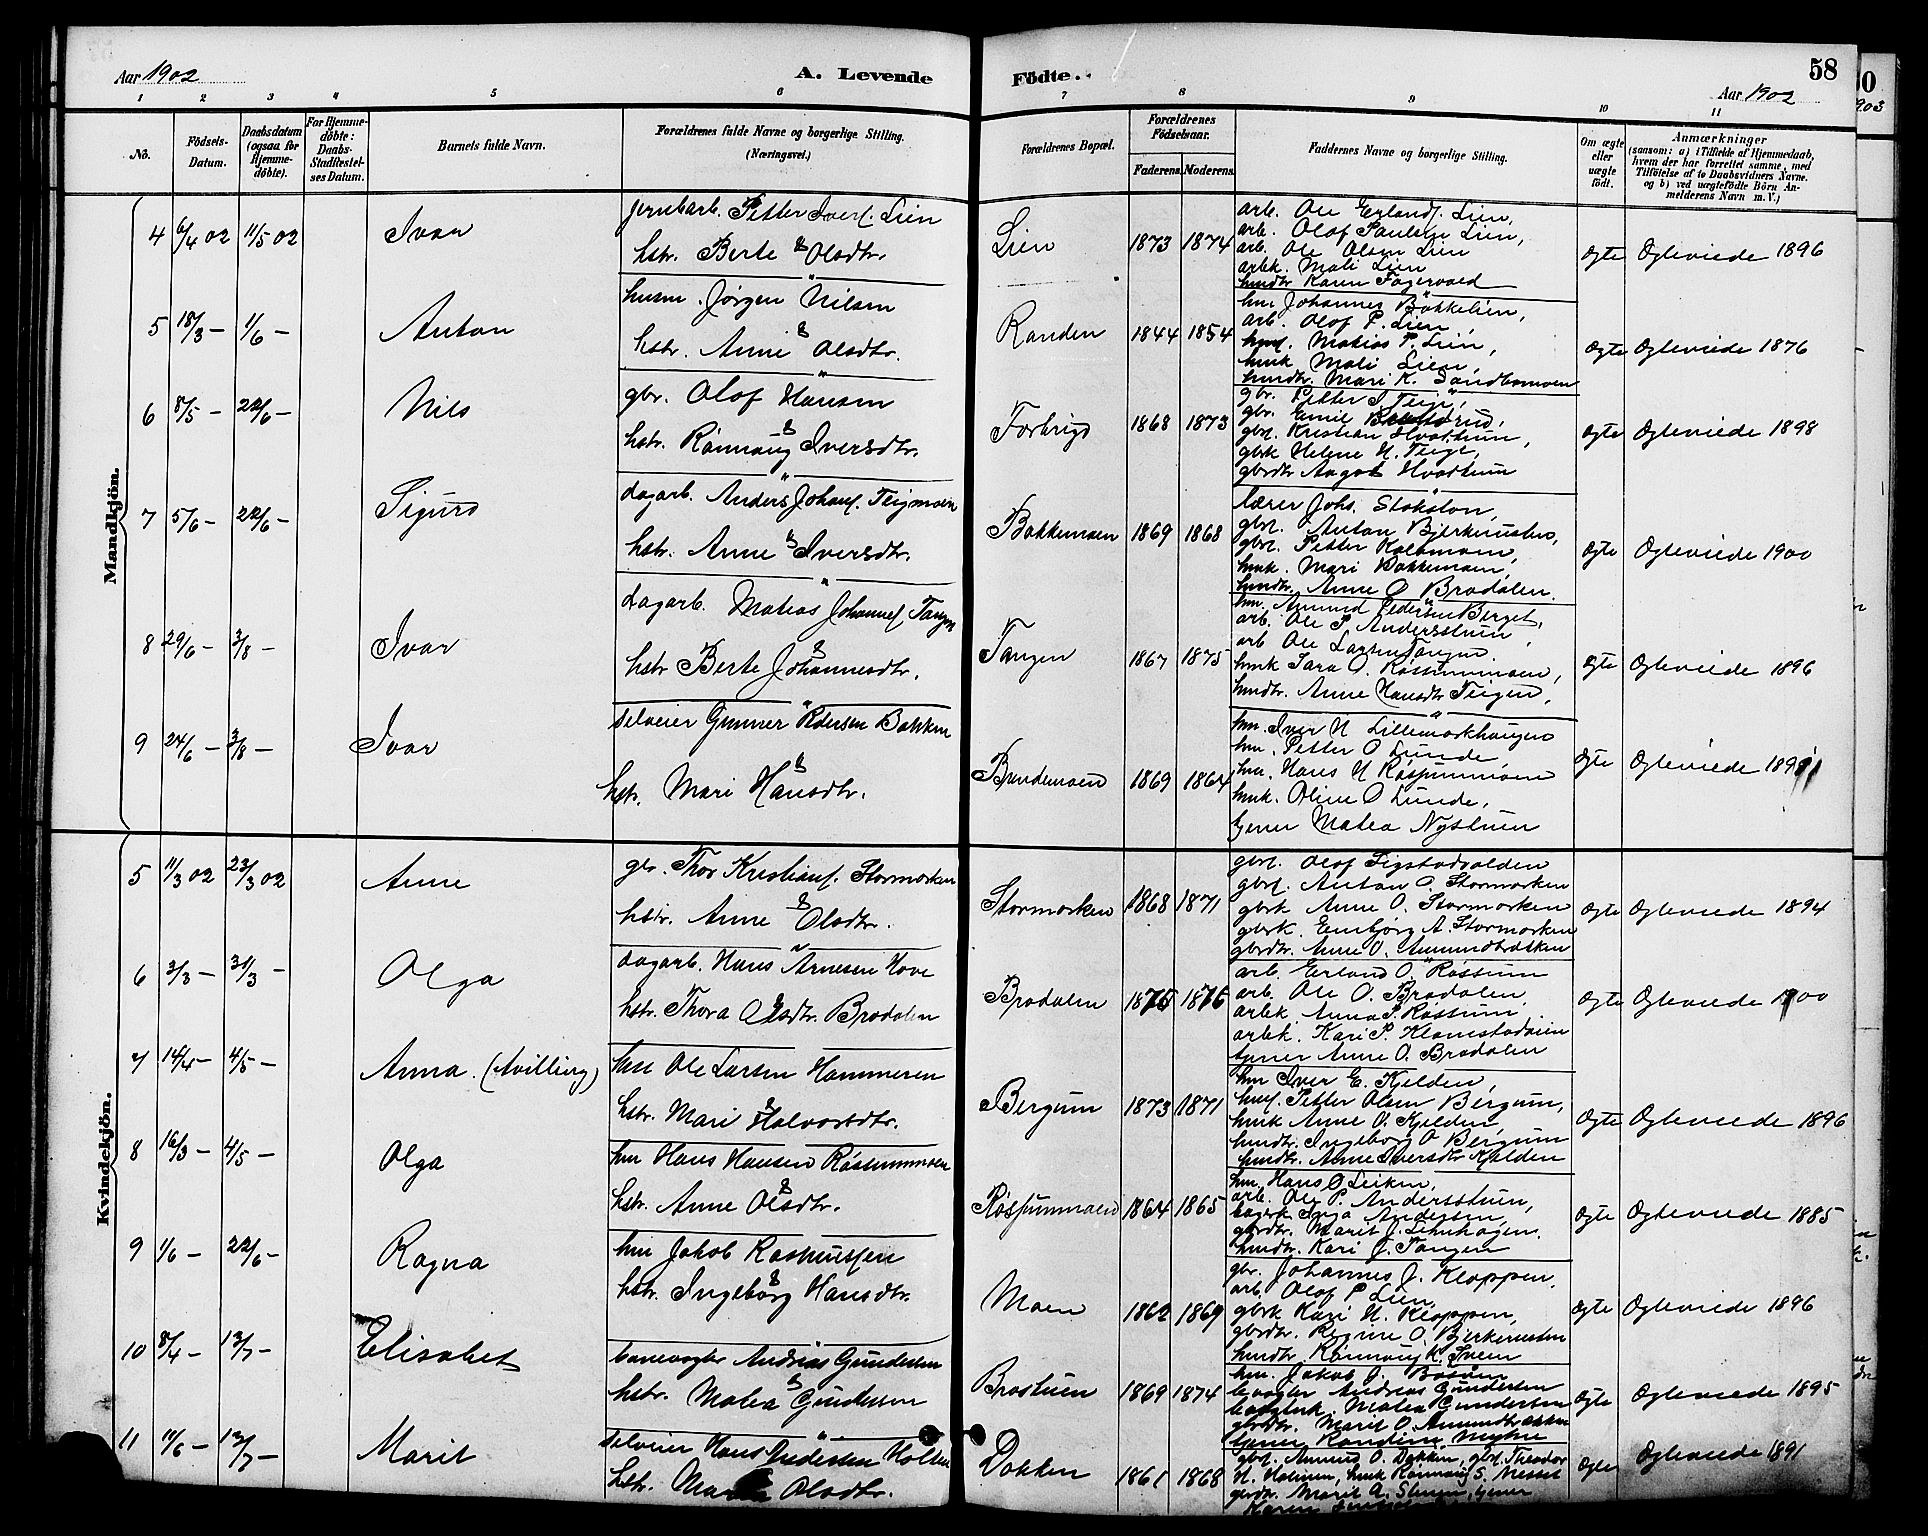 Aar 1902
A. Levende
Födte.
58
Aar 1902
1 2 3 4 5 6 7 8 9 10 11
No.
Födsels-Datum.
Daabsdatum (ogsaa for Hjemme-döbte).
For Hjemme-döbte: Daabs-Stadfæstel-ses Datum.
Barnets fulde Navn.
Forældrenes fulde Navne og borgerlige Stilling. (Næringsvei.)
Forældrenes Bopæl.
Forældrenes Födselsaar.
Faderens. Moderens.
Faddernes Navne og borgerlige Stilling.
Om ægte eller uægte födt.
Anmærkninger
(saasom: a) i Tilfælde af Hjemmedaab, hvem der har forrettet samme, med Tilföielse af to Daabsvidners Navne, og b) ved uægtefödte Börn An-melderens Navn m.V.)
Mandkjön.
4 6/4 02 11/5 02 Ivar
jernbarb. PetterIvers. Lien
&
hstr. Berte Olsdtr.
Lien 1873 1874
arb. Ole Erlands. Lien,
arb. Olof Paulsen Lien,
arb. Ole Olsen Lien
arbk. Mali Lien
hmdtr Karen Fagervold
Ægte Ægteviede 1896
5 18/3 – 1/6 – Anton
husm. Jörgen Nilsen
&
hstr. Anne Olsdtr.
Randen 1844 1854
hm. Johannes Bakkelien,
arb. Olof P. Lien,
hms. Matias P. Lien,
hmk Mali Lien,
hmdtr. Mari K. Sandbumoen
Ægte Ægteviede 1876
6 8/5 – 22/6 – Nils
gbr. Olof Hansen
&
hstr. Rönnaug Iversdtr.
Forbrigd 1868 1873
gbr. Petter I Teige,
gbr. Emil
gbs. Kristian Hvattum,
gbrk Helene H. Teige,
gbrdtr Aagot Hvattum
Ægte Ægteviede 1898
7 5/6 – 22/6 – Sigurd
dagarb. Anders Johans. Teigmoen
&
hstr. Anne Iversdtr.
Bakkemoen 1869 1868
lærer Johs. Stokston,
gbs. Anton Bjerkeneshus,
gbs. Petter Kolbmoen,
hmk. Mari Bakkemoen,
hmdtr. Anne O Bradalen.
Ægte Ægteviede 1900
8 29/6 – 3/8 – Ivar
dagarb. Matias Johannes. Tangen
&
hstr Berte Johannesdtr.
Tangen 1867 1875
hm. Amund Pedersen Berget,
arb. Ole P Andersstuen,
arb Ole Larsen Tangen
hmk Sara O. Røssummoen,
hmdtr. Anne Hansdtr Teigen,
Ægte Ægteviede 1896
9 24/6 – 3/8 – Ivar
selveier Gunner Pedersen Bakken
&
hstr. Mari Hansdtr.
Brendemoen 1869 1864
hm. Iver H Lillemorkhaugen
hm. Petter O Lunde,
hm. Hans H Røssummoen
hmk. Oline O Lunde,
tjener Matea Nystuen
Ægte Ægteviede 1891
Kvindekjön.
5 11/3 02 23/3 02 Anne
gbr. Thor Kristians. Stormorken
&
hstr. Anne Olsdtr.
Stormorken 1868 1871
gbs. Olof Sigstadvolden
gbs. Anton O. Stormorken
gbrk Anne O. Stormorken
gbrk. Embjörg A. Stormorken
gbrdtr. Anne O. Amundbakken
Ægte Ægteviede 1894
6 3/3 – 31/3 – Olga
dagarb. Hans Arnesen Hove
&
hstr. Thora Olsdtr. Bradalen
Bradalen 1875 1876
arb. Erland O. Røssum
arb. Ole O. Bradalen
arbk. Anna P. Røssum
arbk. Kari P. Klomstadøien
tjener Anne O. Bradalen
Ægte Ægteviede 1900
7 14/4 – 4/5 – Anna (tvilling)
hm Ole Larsen Hammeren
&
hstr. Mari Halvorsdtr.
Bergum 1873 1871
hm Iver E. Kjelden,
hms. Petter Olsen Bergum,
hmk Anne O. Kjelden
hmdtr. Ingeborg O Bergum
hmdtr. Anne Iversdtr Kjelden
Ægte Ægteviede 1896
8 16/3 – 4/5 – Olga
hm Hans Hansen Røssummoen
&
hstr. Anne Olsdtr.
Røssummoen 1864 1865
hm. Hans O Leiken,
arb. Ole P. Andersstuen,
Inga Andersen
gbrdtr. Marit J.
hmdtr. Kari J. Tangen
Ægte Ægteviede 1885
9 1/6 – 22/6 – Ragna
hm Jakob Rasmussen
&
hstr. Ingeborg Hansdtr.
Moen 1862 1869
gbr. Johannes J. Kloppen,
arb. Olof P Lien,
gbrk Kari H. Kloppen,
gbrdtr. Regine O. Bjerkenesten
hmdtr. Rönnaug K. Sveen
Ægte Ægteviede 1896
10 8/4 – 13/7 – Elisabet
banevogter Andrias Gundersen
&
hstr. Matea Gundersen
Brostuen 1869 1874
hm. Jakob J.
bvogter Andrias Gundersen
Matea Gundersen
gbrdtr. Marit O. Amundbakken
tjener Randine Myhre
Ægte Ægteviede 1895
11 11/6 – 13/7 – Marit
selveier Hans Holmen
hstr. Olsdtr.
Dokken 1861 1868
gbs. Amund O. Dokken, gbs. Theodor
H. Holmen, hmk Rönnaug S. Nesset
gbrdtr. Marit A. Stuen, tjener
Karen
Ægte Ægteviede 1891